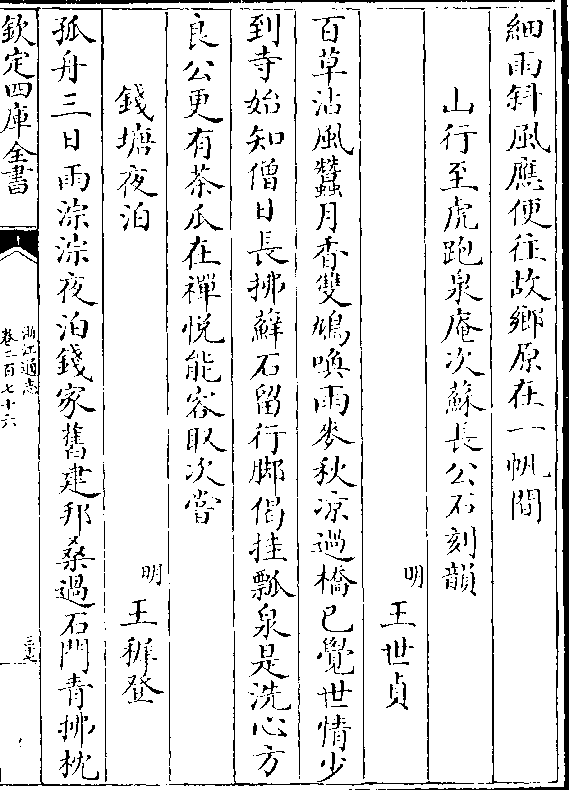 細雨斜風應便往故鄉原在一帆間
山行至虎跑泉庵次蘇長公石刻韻
明 王世貞
百草沾風蠶月香雙鳩喚雨麥秋凉過橋已覺世情少
到寺始知僧日長拂蘚石留行脚偈挂瓢泉是洗心方
良公更有茶瓜在禪悦能容取次嘗
錢塘夜泊
明 王穉登
孤舟三日雨淙淙夜泊錢家舊建邦桑過石門青拂枕
欽定四庫全書
浙江通志
卷二百七十六
三十七